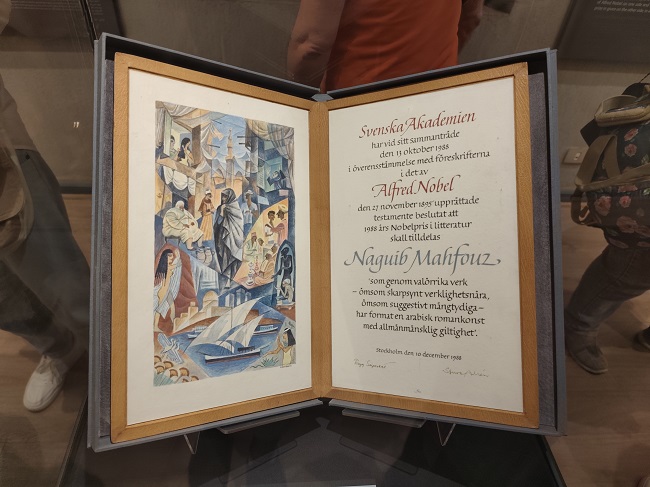 Svenska Akademien
har vid sitt sammanträde
den 13 oktober 1988
i överensstämmelse med föreskrifterna
i det av
Alfred Nobel
den 27 november 1895 upprättade
testamente beslutat att
1988 års Nobelpris i litteratur
skall tilldelas
Naguib Mahfouz,
"som genom valörrika verk
– ömsom skarpsynt verklighetsnära,
ömsom suggestivt mångtydiga –
har format en arabisk romankonst
med allmänmänsklig giltighet".
Stockholm den 10 december 1988